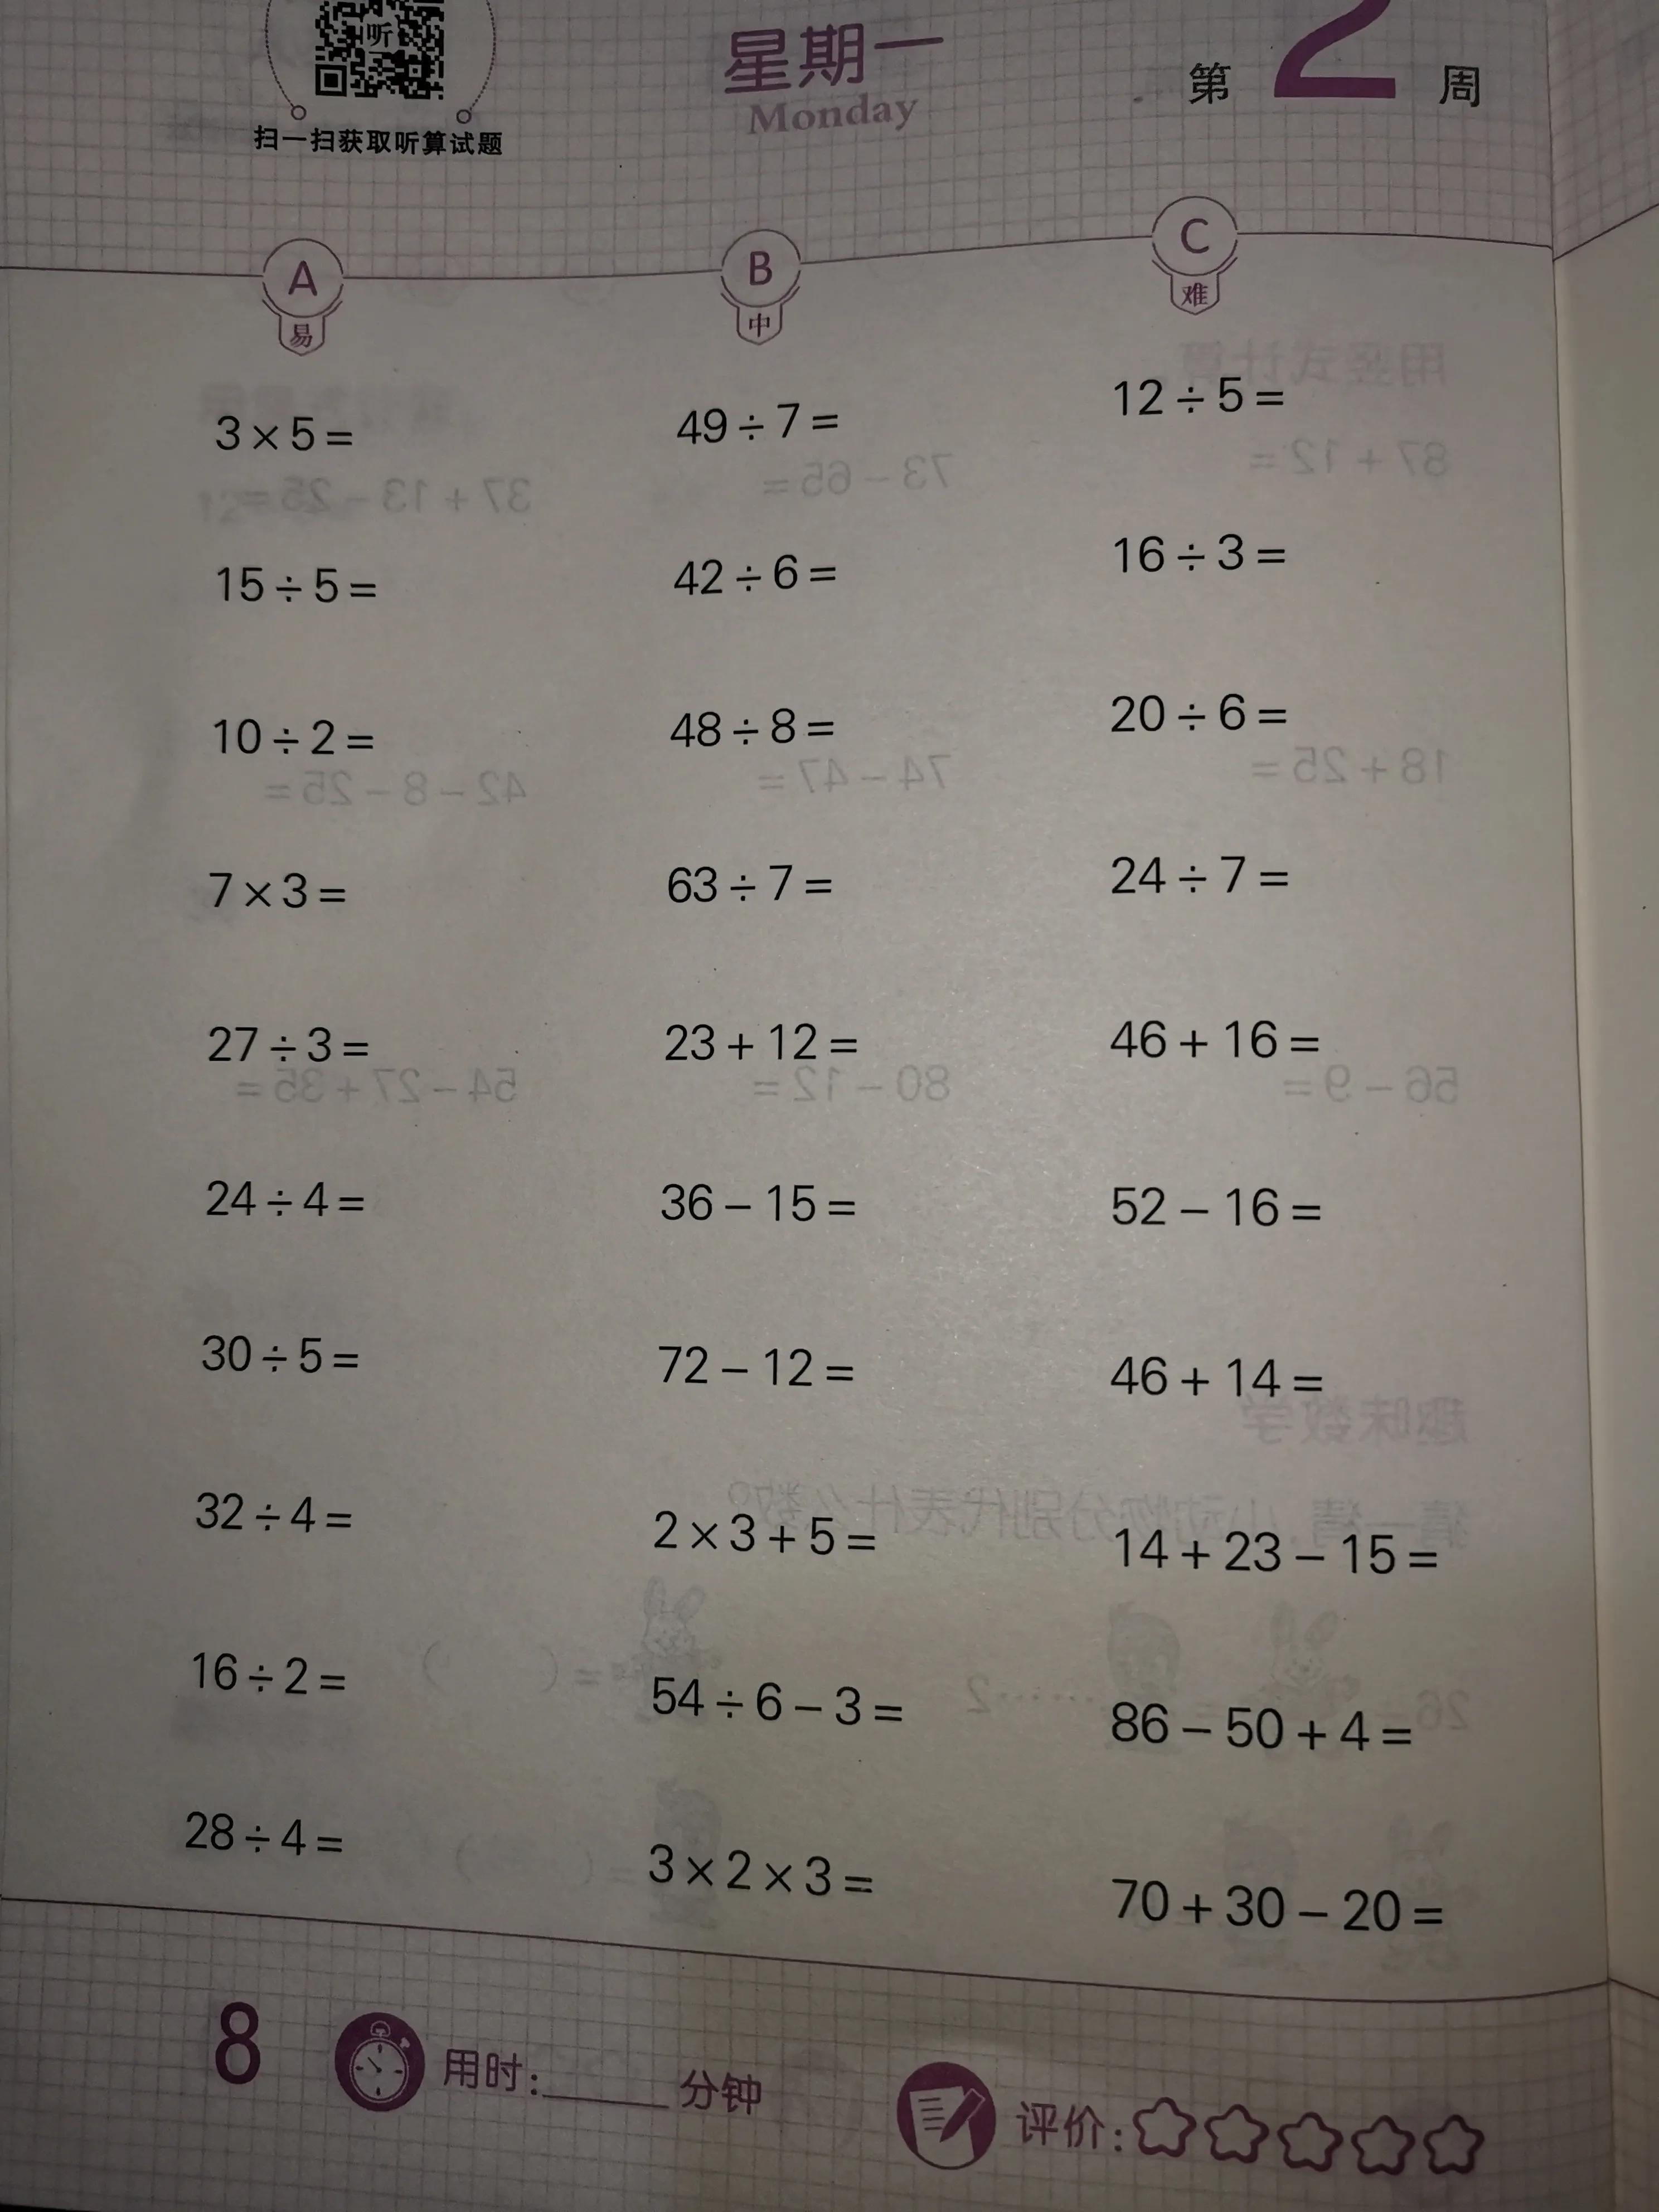 听
扫一扫获取听算试题
星期一
Monday
第 2 周
A
易
B
中
C
难
3×5=
15÷5=
10÷2=
7×3=
27÷3=
24÷4=
30÷5=
32÷4=
16÷2=
28÷4=
49÷7=
42÷6=
48÷8=
63÷7=
23+12=
36-15=
72-12=
2×3+5=
54÷6-3=
3×2×3=
12÷5=
16÷3=
20÷6=
24÷7=
46+16=
52-16=
46+14=
14+23-15=
86-50+4=
70+30-20=
8
用时:______分钟
评价: